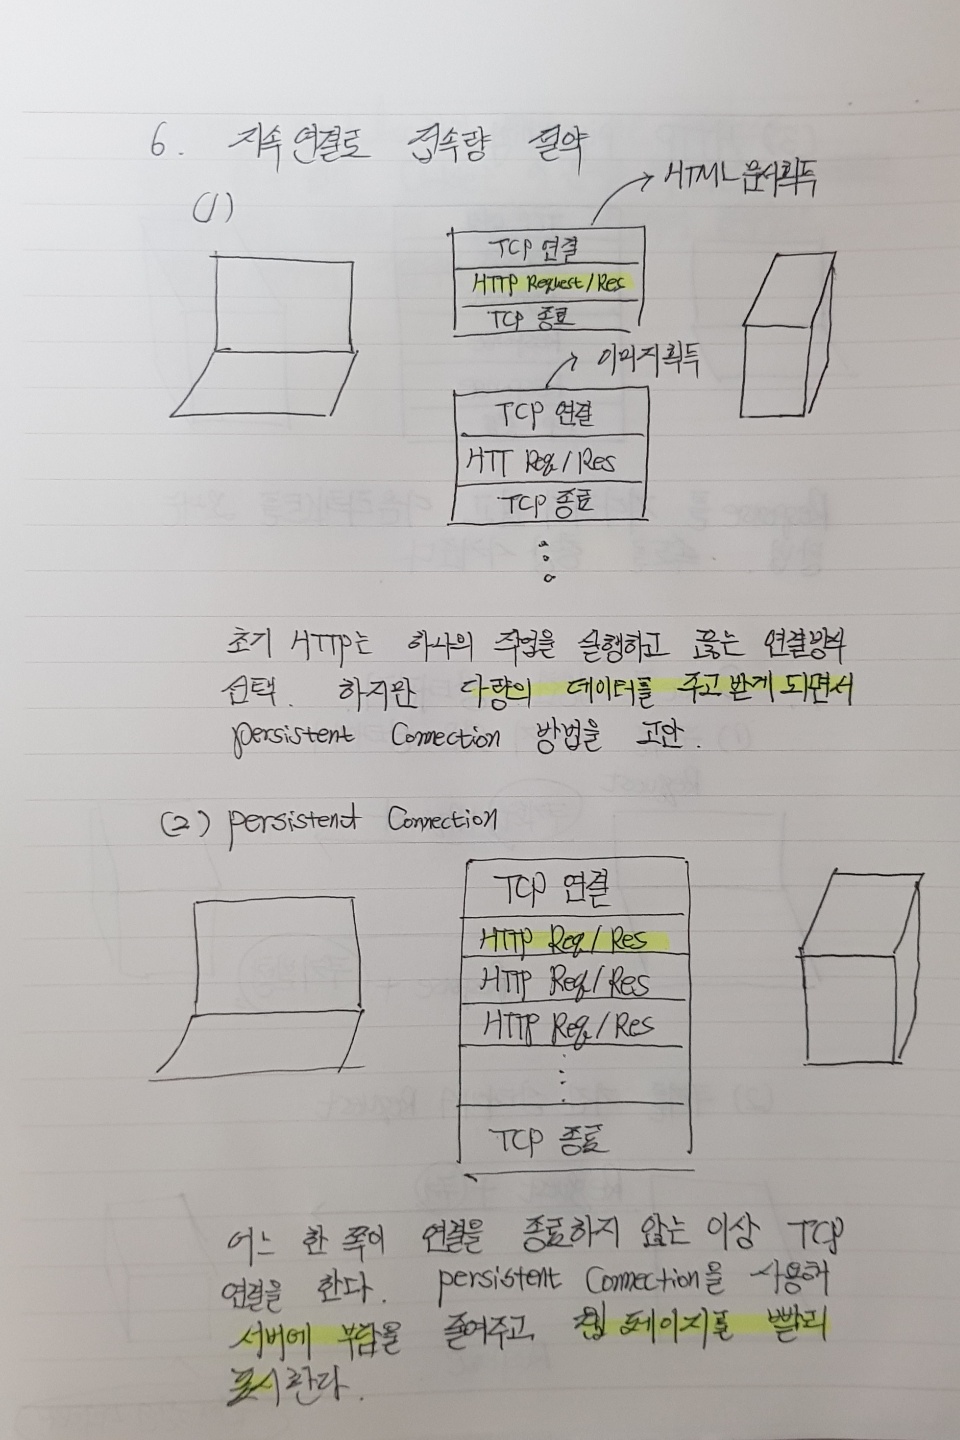 6. 지속연결로 접속량 절약
(1)
HTML 문서획득
TCP 연결
HTTP Request/Res
TCP 종료
이미지획득
TCP 연결
HTT Req/Res
TCP 종료
초기 HTTP는 하나의 작업을 실행하고 끊는 연결방식
선택. 하지만 다량의 데이터를 주고받게 되면서
persistent Connection 방법을 고안.
(2) persistent Connection
TCP 연결
HTTP Req/Res
HTTP Req/Res
HTTP Req/Res
TCP 종료
어느 한 쪽이 연결을 종료하지 않는 이상 TCP
연결을 한다. persistent Connection을 사용해
서버에 부담을 줄여주고, 웹 페이지를 빨리
표시한다.